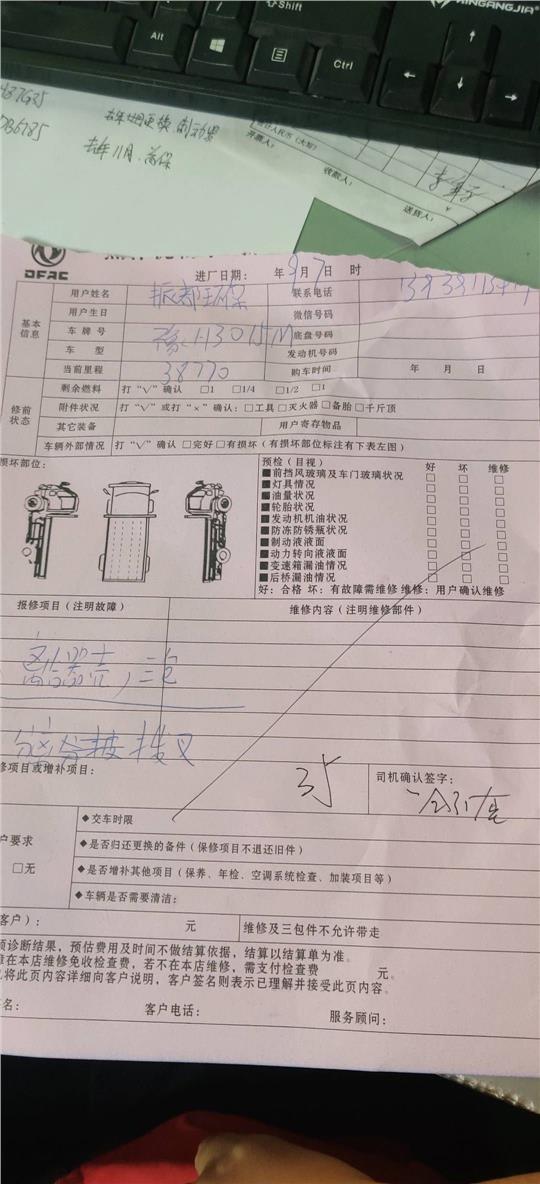 Shift
XINGANGJIA
Alt
Ctrl
去年11月.首保
开票人:
收款人:
送货人:
DFAC
进厂日期: 年9月7日 时
用户姓名 振都环保 联系电话
基本信息
用户生日 微信号码
车牌号 底盘号码
车 型 发动机号码
当前里程 38770 购车时间 年 月 日
修前状态
剩余燃料 打“√”确认 □1 □1/4 □1/2 □1
附件状况 打“√”或打“×”确认: □工具 □灭火器 □备胎 □千斤顶
其它装备 用户寄存物品
车辆外部情况 打“√”确认 □完好 □有损坏 (有损坏部位标注有下表左图)
损坏部位:
预检(目视) 好 坏 维修
■前挡风玻璃及车门玻璃状况 □ □ □
■灯具情况 □ □ □
■油量状况 □ □ □
■轮胎状况 □ □ □
■发动机机油状况 □ □ □
■防冻防锈瓶状况 □ □ □
■制动液液面 □ □ □
■动力转向液液面 □ □ □
■变速箱漏油情况 □ □ □
■后桥漏油情况 □ □ □
好: 合格 坏: 有故障需维修 维修: 用户确认维修
报修项目(注明故障) 维修内容(注明维修部件)
离合器壳, 三包
离合器拨叉
修项目或增补项目:
司机确认签字:
◆交车时限
户要求
◆是否归还更换的备件(保修项目不退还旧件)
□无
◆是否增补其他项目(保养、年检、空调系统检查、加装项目等)
◆车辆是否需要清洁:
客户): 元 维修及三包件不允许带走
预诊断结果, 预估费用及时间不做结算依据, 结算以结算单为准。
在本店维修免收检查费, 若不在本店维修, 需支付检查费 元。
将此页内容详细向客户说明, 客户签名则表示已理解并接受此页内容。
名: 客户电话: 服务顾问: